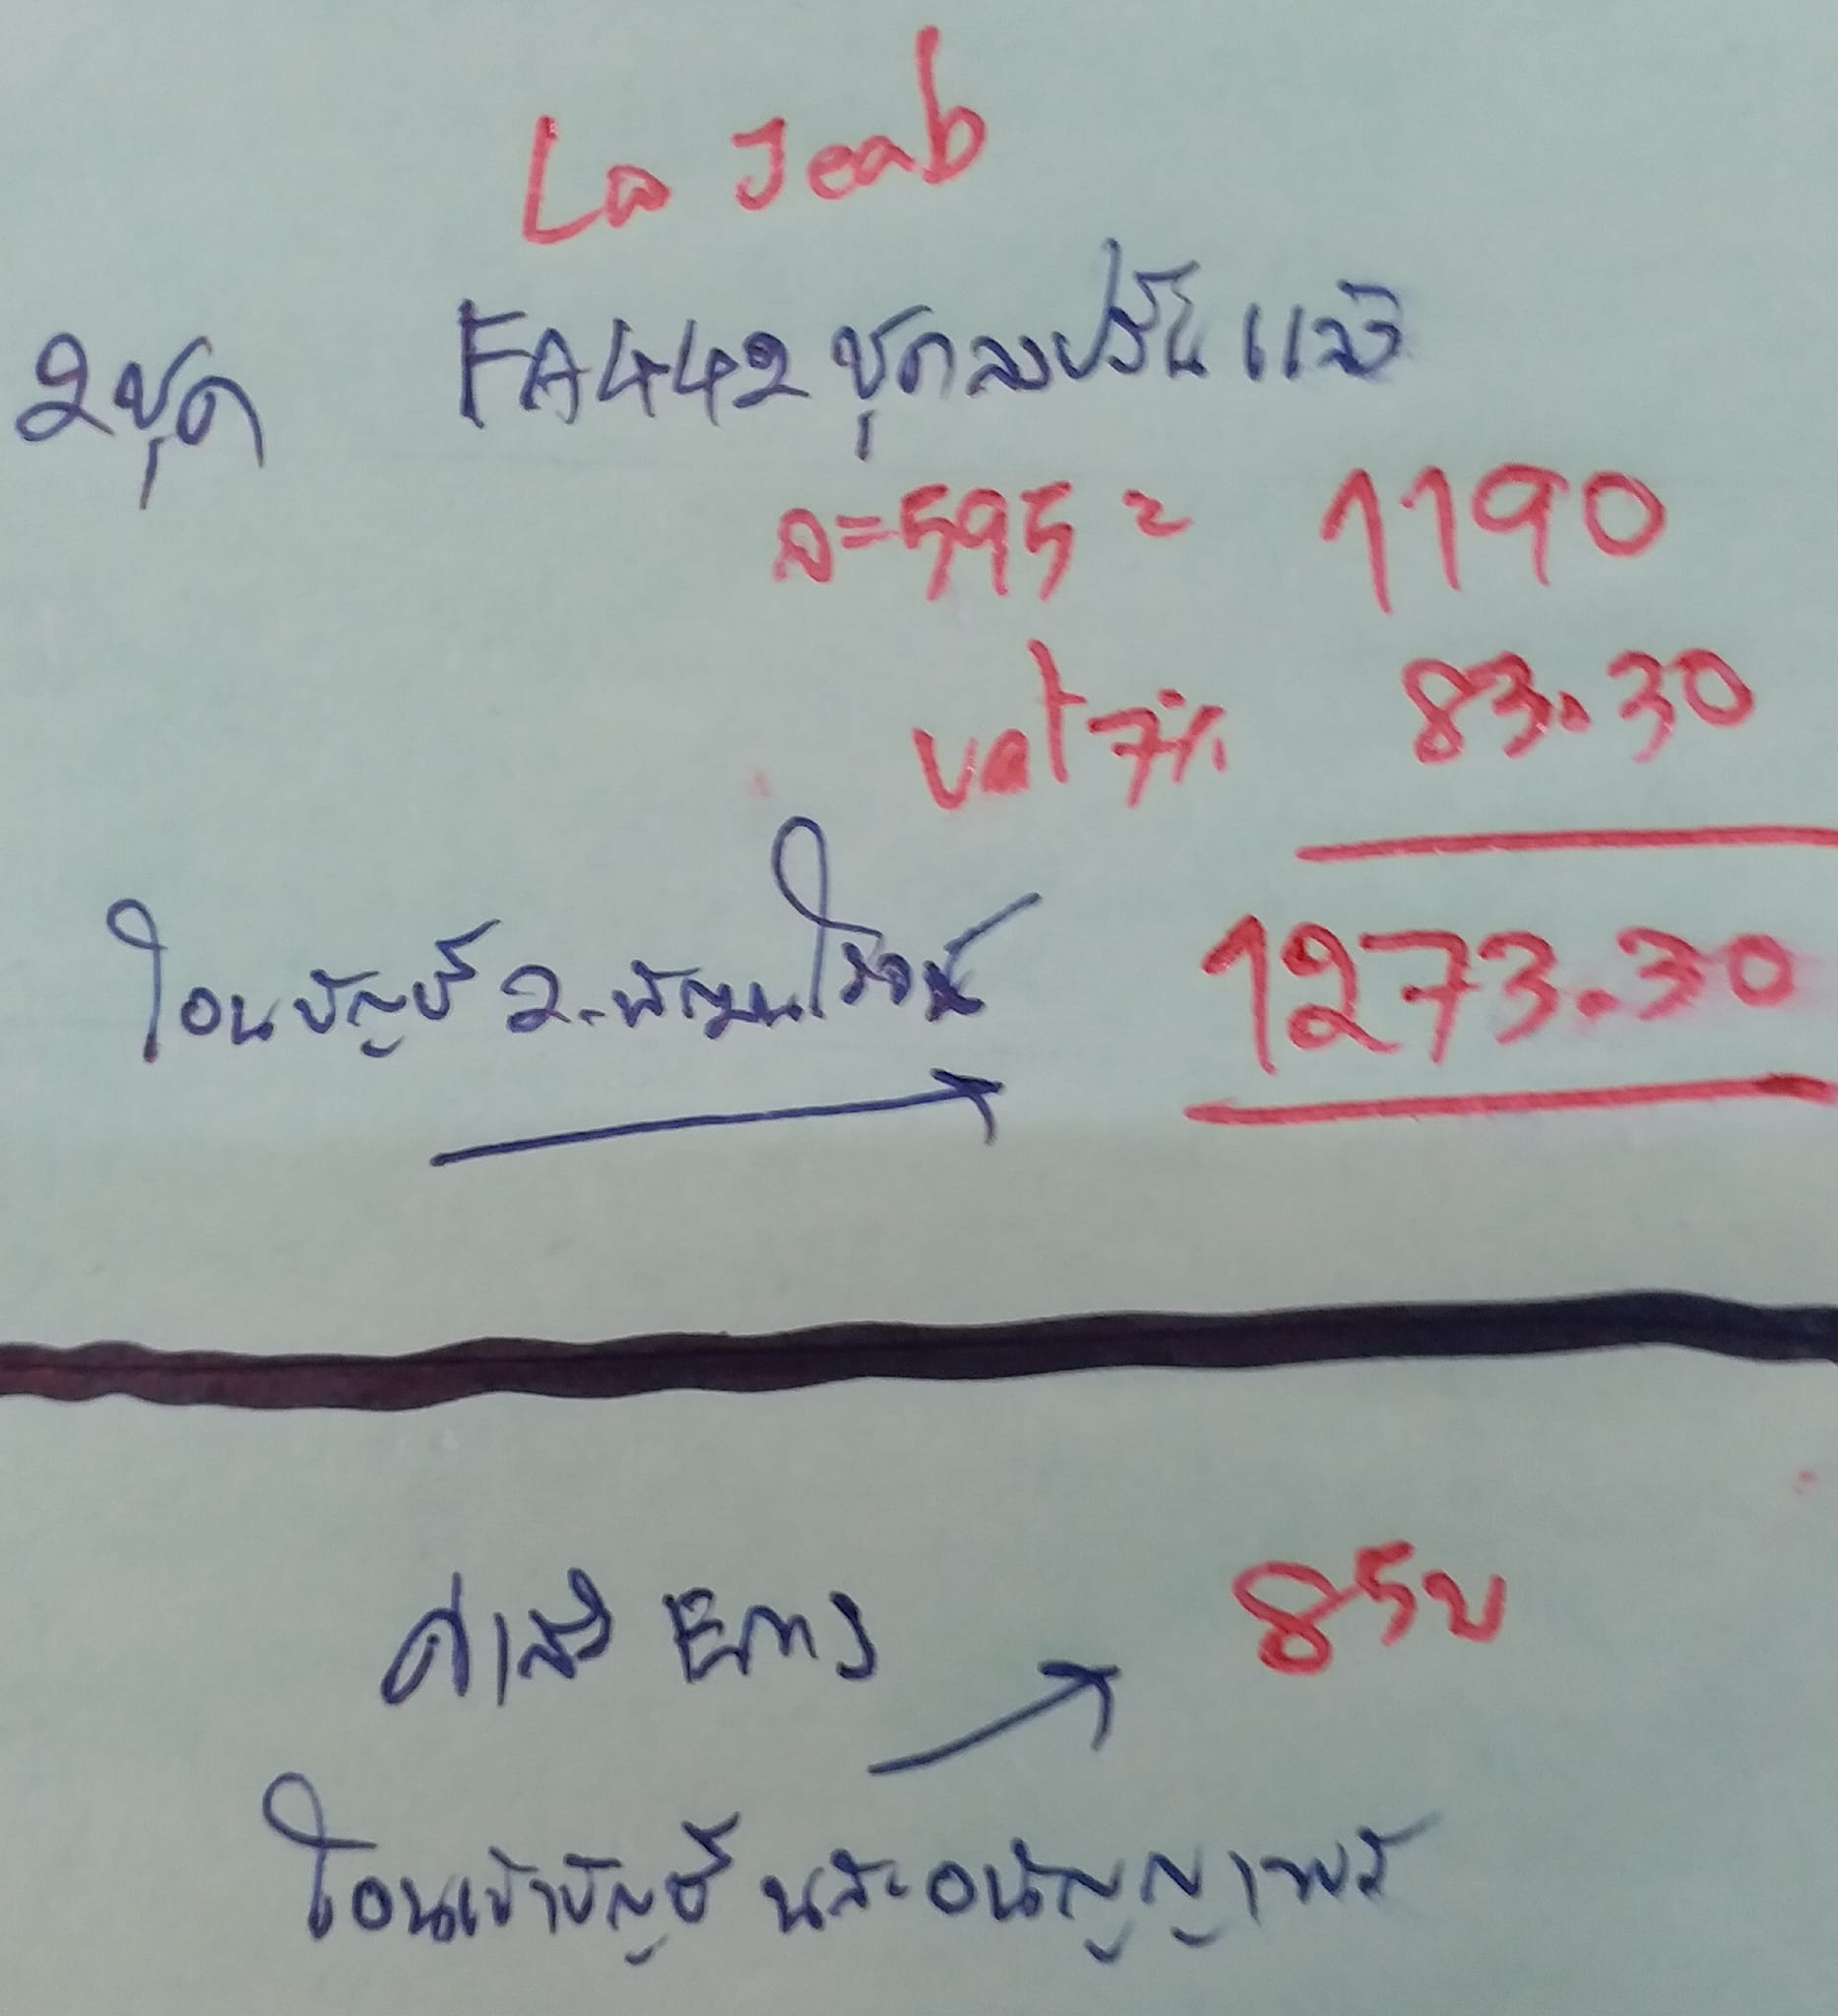 La Jeab
2ชุด FA442 ชุดลงปริ้นแล้ว
ล=595= 1190
vat 7% 83.30
โอนบัญชี 1273.30
ค่าส่ง Ems 85บ
โอนเข้าบัญชี นส.อนัญญาพร